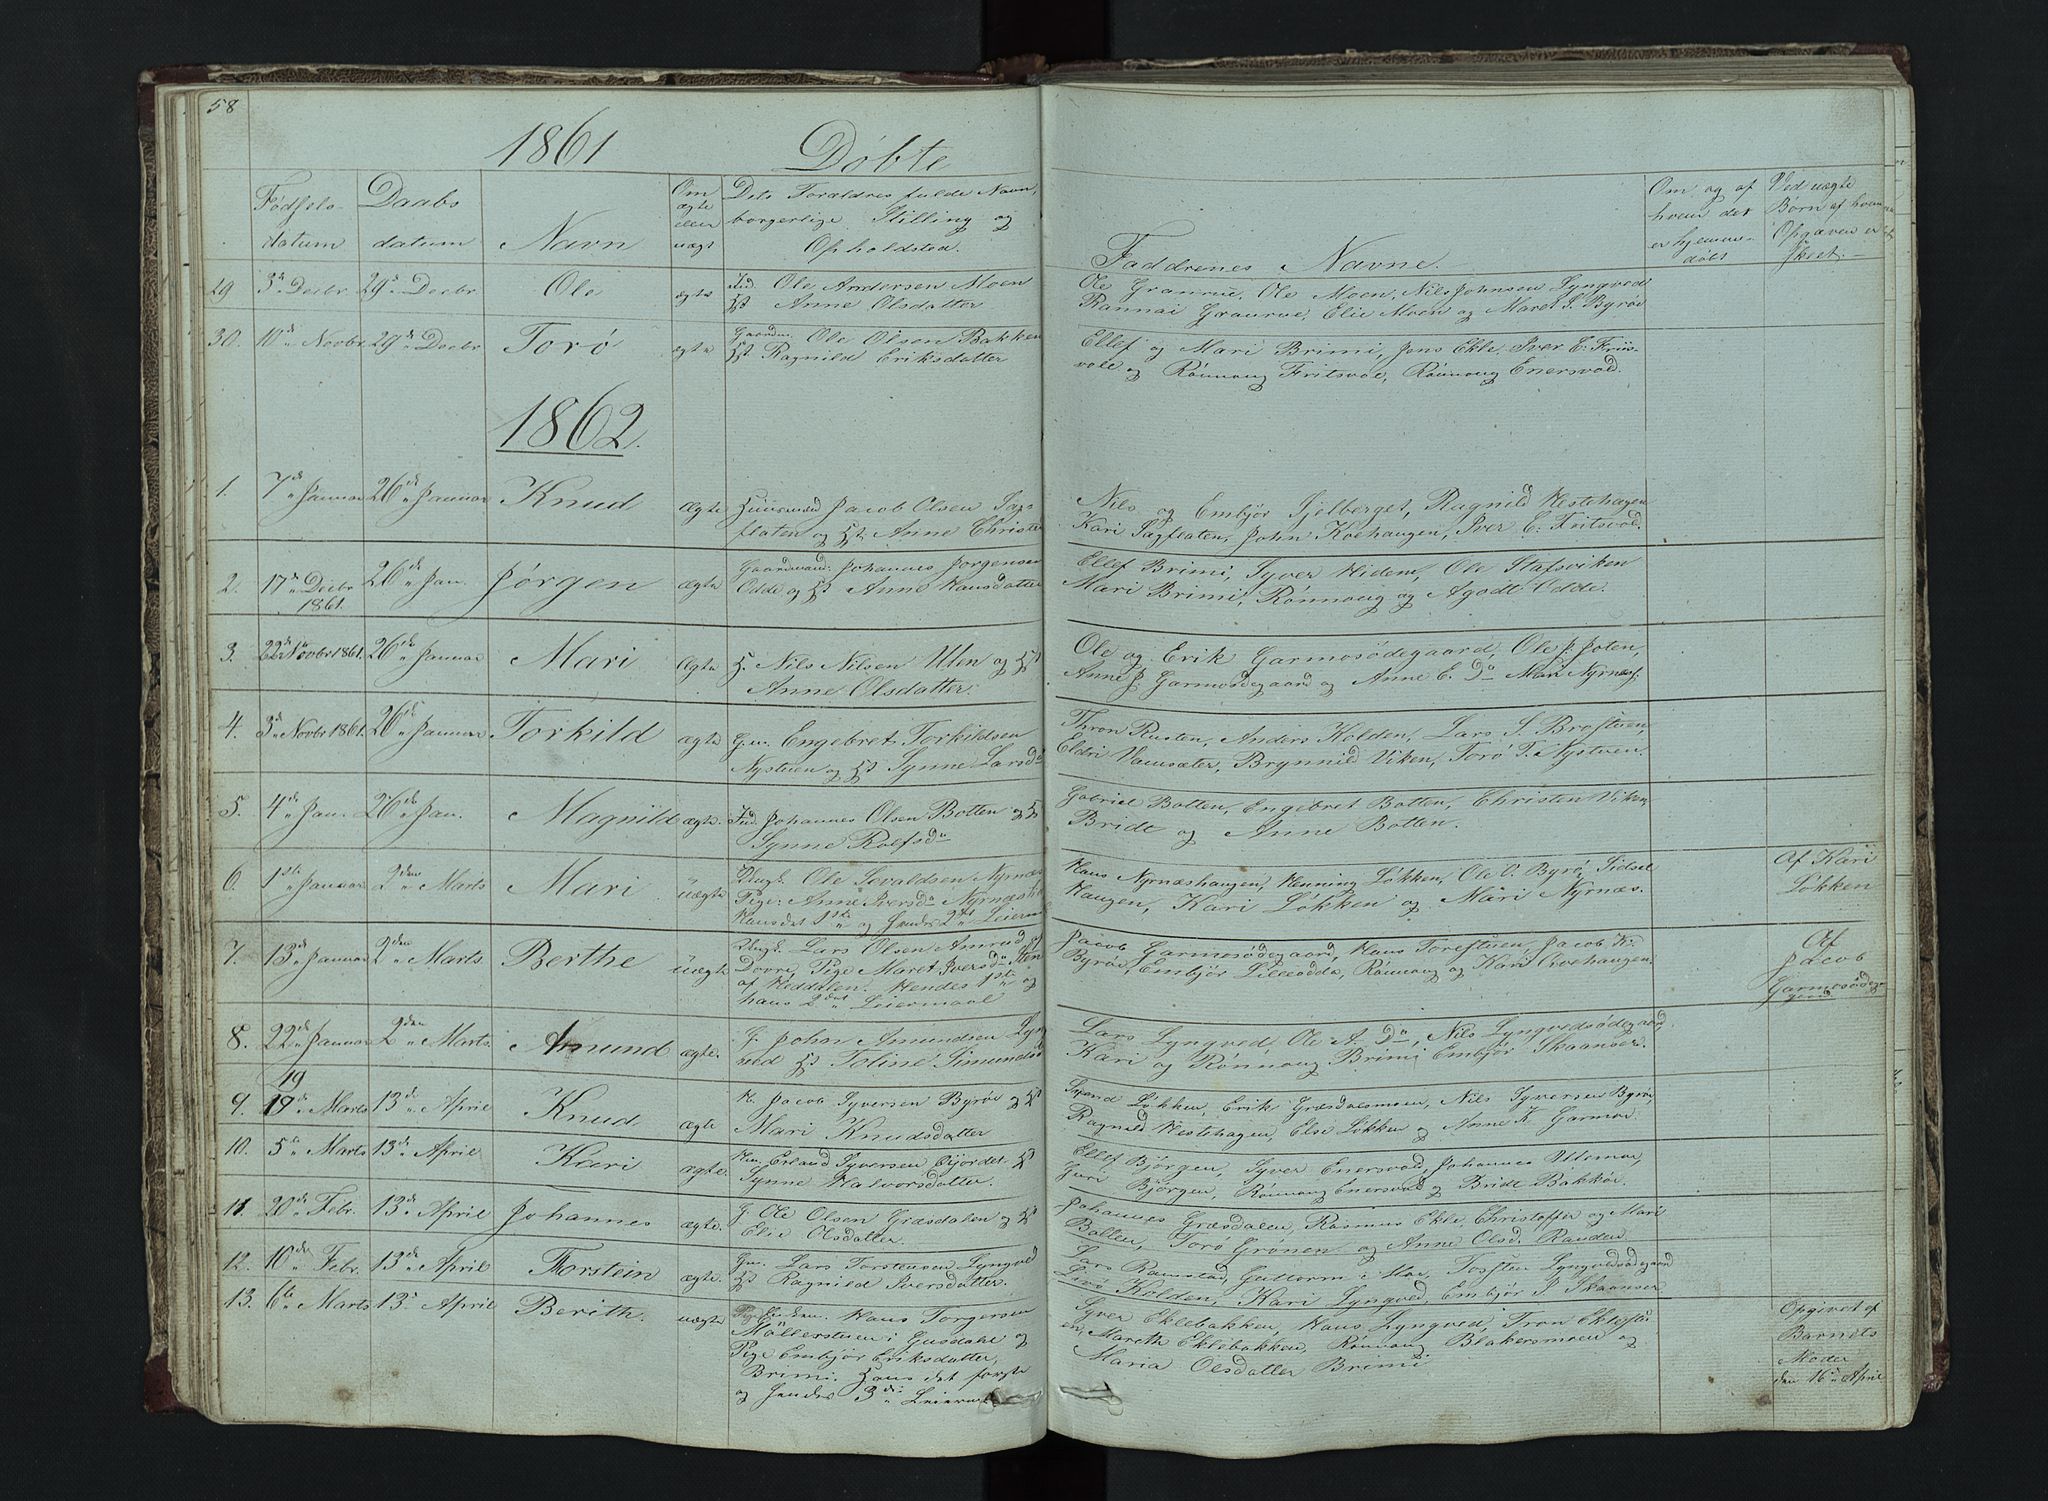 58
1861 Döbte
Födsels-
datum
Daabs
datum
Navn
Om
ægte
eller
uægt
Dets Foraldres fulde Navn,
borgerlige Stilling og
Opholdsted.
Faddrenes Navne.
Om og af
hvem det
er hjemme-
döbt
Ved uægte
Börn af hvem
Opgaven er
skeet.
29 3d Decbr. 29d Decbr Ole ægte Ind. Ole Andersen Moen
Anne Olsdatter
Ole Graurue, Ole Moen, Nils Johnsen Lyngved
Rannai Graurue, Elie Moen og Maret S. Byröe
30. 10d Novbr. 29d Decbr Torö ægte Gaardm. Ole Olsen Bakken
Ragnild Eriksdatter
Ellef og Mari Brimi, Jens Ekle, Iver E. Friis-
vole og Rönnoug Fritsvol, Rönnoug Enersvod.
1862.
1. 7d Januar 26d Januar Knud Ægte Huusmand Jacob Olsen Sag-
flaten og Anne Christe
Nils og Embjör Sjelberget, Ragnild Hestehagen
Kari Sagflaten, John Kvehaugen, Iver E. Fritsvod.
2. 17d Decbr 26d Jan. Jörgen ægte Gaardmand Johannes Jörgensen
1861. Odde og Anne Hansdatter
Ellef Brimi, Syver Hidem, Ole Stafsviken
Mari Brimi, Rönnoug og Agodt Odde.
3. 22d Novbr 1861. 26d Januar Mari Ægte Nils Nilsen Uten og
Anne Olsdatter.
Ole og Erik Garmosödegaard, Ole J. Joten,
Anne J. Garmosödegaard og Anne E. Do Mari Nyrnæs.
4. 3d Novbr 1861. 26d Januar Torkild ægte Gm. Engebret Torkildsen
Nystuen og Synne Larsd.
Thron Rusten, Anders Kolden, Lars S. Brostuen,
Eldri Vamsæter, Brynnild Viken, Torö T. Nystuen.
5. 4d Jan. 26d Jan. Magnild ægte. Ind. Johannes Olsen Botten og
Synne Rolfsd.
Gabriel Botten, Engebret Botten, Christen Viken
Bridt og Anne Botten.
6. 1ste Januar 2den Marts Mari uægte Ungk. Ole Sevaldsen Nyrnæs
Pige: Anne Iversd. Nyrnæs
Hans det 1ste og hendes 2det Leierm
Hans Nyrnæshaugen, Henning Lökken, Ole O. Byrö, Sidsel
Haugen, Kari Lökken og Mari Nyrnæs.
Af Kari
Lökken
7. 13d Januar 2den Marts. Berthe uægte Ungk. Lars Olsen Amrud
Dovre, Pige Maret Iversd.
af Heddalen. Hendes 1ste og
hans 2det Leiermaal
Jacob Garmosödegaard, Hans Torestuen, Jacob K.
Byröe, Embjör Lilleodda, Rönnoug og Kari Kvehaugen.
Af
Jacob
Garmosödeg-
gaard
8. 22d Januar 2den Marts. Amund ægte. G. John Amundsen Lyng
ved Toline Simundsd
Lars Lyngved, Ole A. Do, Nils Lyngvedsödegaard,
Kari og Rönnoug Brimi, Embjör Skaanser.
19
9. 19d Marts 13d April Knud ægte Jacob Syversen Byröe
Mari Knudsdatter
Svend Lökken, Erik Græsdalsmoen, Nils Syversen Byröe,
Ragnild Hestehagen, Else Lökken og Anne K. Garmoe.
10. 5te Marts 13d April Kari ægte. Hm. Erland Syversen Öijordet
Synne Halvorsdatter.
Ellef Björgen, Syver Enersvod, Johannes Uttemoe,
Guri Björgen, Rönnoug Enersvod og Bridt Bakköe.
11. 20d Febr. 13d April Johannes ægte. G. Ole Olsen Græsdalen og
Else Olsdatter.
Johannes Græsdalen, Rasmus Ekle, Christoffer og Mari
Botten, Torö Grönen og Anne Olsd. Randen.
12. 10de Febr. 13d April Torstein ægte. Gm. Lars Torstensen Lyngved
Ragnild Iversdatter.
Lars Ramstad, Guttorm i Moe, Tosten Lyngvedsödegaard
Livö Kolden, Kari Lyngved, Embjör J. Skaanser
13. 6te Marts 13d April Berith. uægte Hans Torgersen
Möllerstuen i Gusdahl og
Pige Embjör Eriksdatter,
Brimi. Hans det förste
og hendes 3die Leierm
Syver Eklebakken, Hans Lyngved, Tron Eklestu
en, Mareth Eklebakken, Rönnoug Blakersmoen og
Maria Olsdatter Brimi
Opgivet af
Barnets
Moder
den 16d April